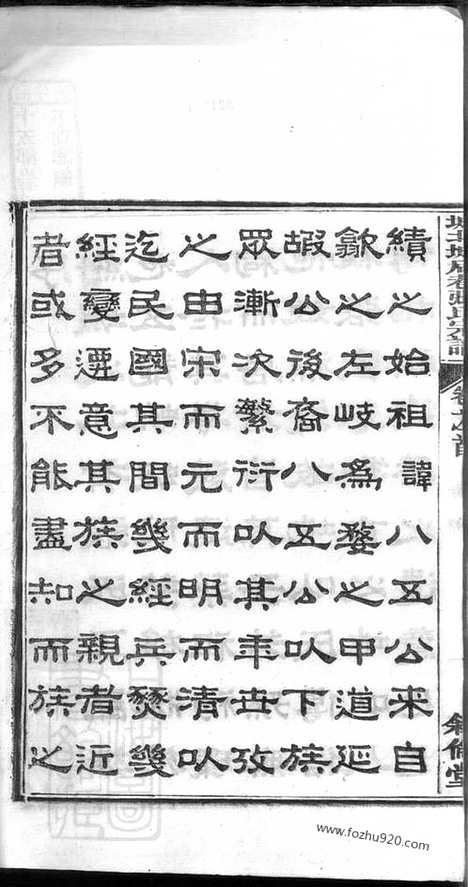 卷之首
績之始祖諱八五公来自
歙之左岐為婺之甲道延
嘏公後裔八五公以下族
眾漸次繁衍以其年世攷
之由宋而元而明而清以
迄民國其間幾經兵燹幾
經變遷意其族之親者近
者或多不能盡知而族之
www.fozhu920.com